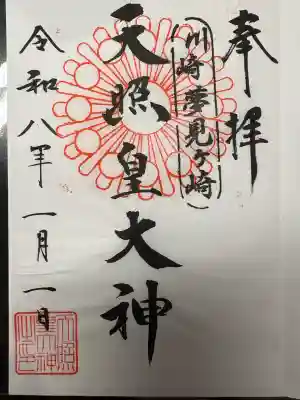 奉拝
（川崎夢見ヶ崎）
天照皇大神
令和八年一月一日